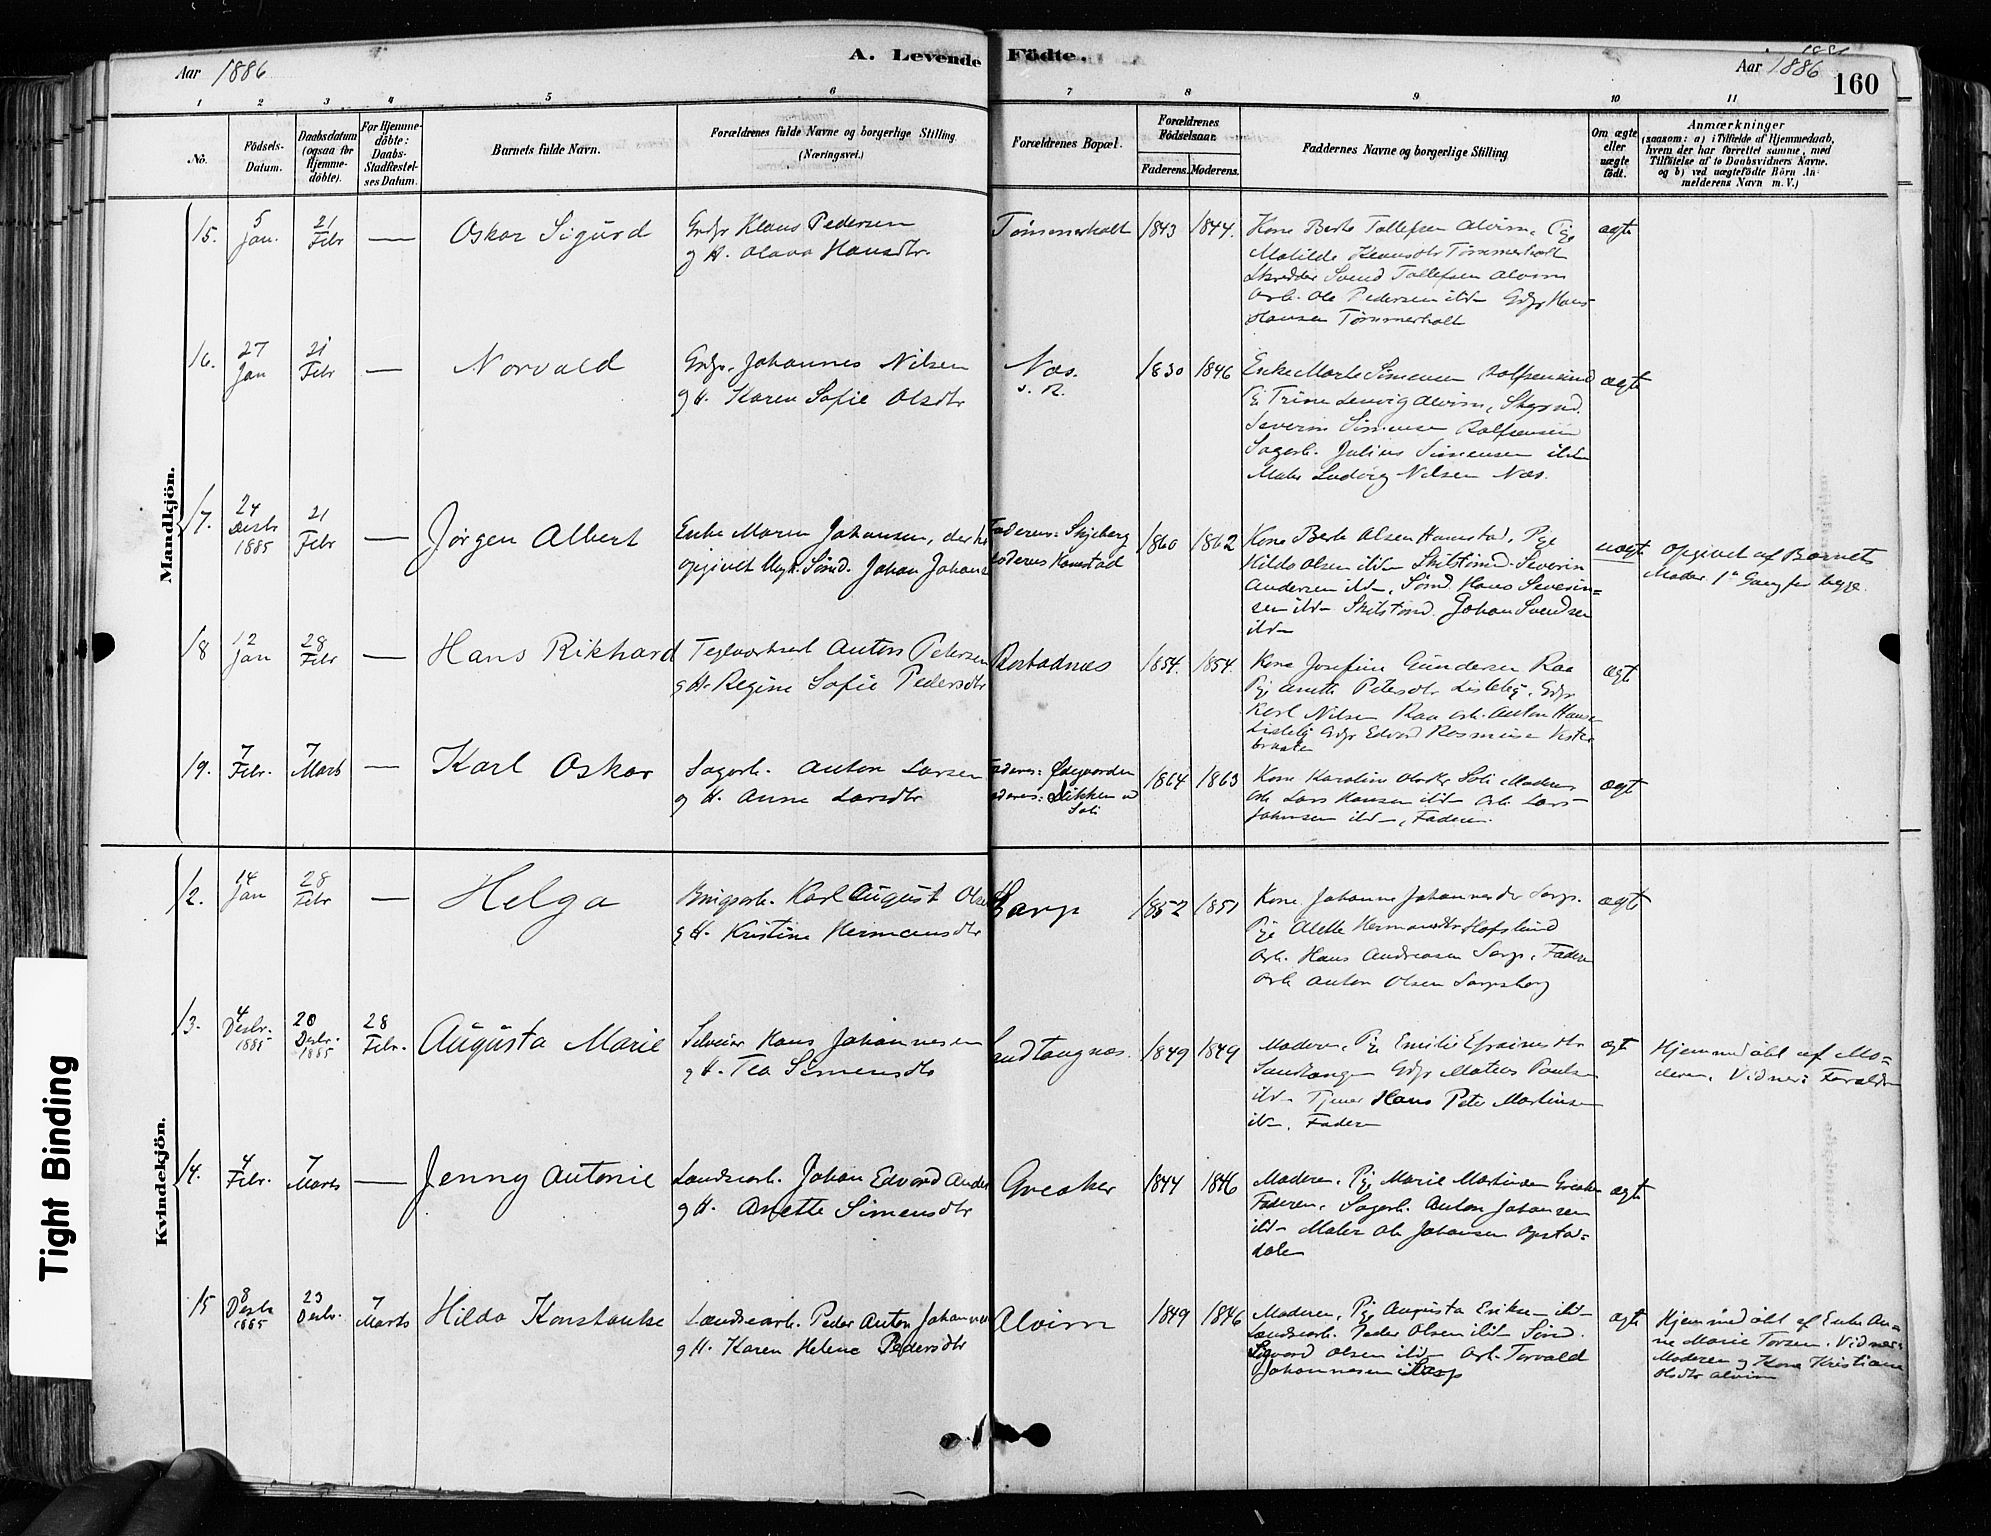 Aar 1886
A. Levende Födte.
Aar 1886
160
1 2 3 4 5 6 7 8 9 10 11
No.
Födsels-
Datum.
Daabsdatum
(ogsaa for
Hjemme-
döbte).
For Hjemme-
döbte:
Daabs-
Stadfæstel-
ses Datum.
Barnets fulde Navn.
Forældrenes fulde Navne og borgerlige Stilling
(Næringsvei.)
Forældrenes Bopæl.
Forældrenes
Födselsaar.
Faderens. Moderens.
Faddernes Navne og borgerlige Stilling
Om ægte
eller
uægte
födt.
Anmærkninger
(saasom: a) i Tilfælde af Hjemmedaab,
hvem der har forrettet samme, med
Tilföielse af to Daabsvidners Navne.
og b) ved uægtefödte Börn An-
melderens Navn m. V.)
Mandkjön.
15. 5 Jan. 21 Febr — Oskar Sigurd
Grdr Klaus Pedersen
g H. Olava Hansdtr.
Tømmerholt 1843 1844.
Kone Berte Tollefsen Alvim, Pige
Matilde Klausdtr Tømmerholt
Skredder Svend Tollefsen Alvim
Arb. Ole Pedersen ibd Grdr Hans
Hansen Tømmerholt
ægte
16. 27 Jan 21 Febr — Norvald
Grdr. Johannes Nilsen
g H. Karen Sofie Olsdtr
Næs. 1830 1846
Enke Marte Simensen
Pi Trine Alvim,
Severin Simensen
Sagarb. Julius Simensen ibd
Maler Ludvig Nilsen Næs.
ægte
17. 24 Desbr 1885 21 Febr — Jørgen Albert
Enke Maren Johansen, der har
opgivet Ungk. Sømd. Johan Johans
Faderens: Skjeberg
Moderens Hanestad 1860 1862
Kone Berte Olsen Hanestad, Pige
Hilda Olsen ibd Severin
Andersen ibd, Sømd. Hans Severin-
sen ibd Johan Svendsen
ibd
uægte
Opgivet af Barnets
Moder. 1ste Gang for begge.
18 12 Jan 28 Febr — Hans Rikhard
Teglværksarb Anton Petersen
g H. Regine Sofie Pedersdtr
Rostadnæs 1854. 1854.
Kone Josefine Gundersen Raa
Pige Anette Petersdtr Lisleby. Grdr
Karl Nilsen Raa Arb. Anton Hansen
Lisleby Grdr Edvard Rasmusen Vester
braate
ægte
19. 7 Febr. 7 Marts — Karl Oskar
Sagarb. Anton Larsen
g H. Anne Larsdtr
Faderens: Ødegaarden
Moderens: Slikken v
Soli 1864 1863
Kone Karoline Soli Moderen
Arb Lars Hansen ibd Arb Lars
Johnsen ibd, Faderen.
ægte
Kvindekjön.
12. 14 Jan 28 Febr — Helga
Brugsarb. Karl August Olsen
g H. Kristine Hermansdtr
Sarp 1852 1851
Kone Johanne Johannesdtr Sarp.
Pige Alette Hermansdtr Hafslund
Arb. Hans Andreasen Sarp, Faderen
Arb Anton Olsen Sarpsborg
ægte
13. 4 Desbr. 1885 20 Desbr. 1885 28 Febr. Augusta Marie
Selveier Hans Johannesen
g H. Tea Simensdtr
Sandtangnæs. 1849 1849
Moderen, Pige Emilie Efraimsdtr
Sandtangen Grdr Mateus Paulsen
ibd Tjener Hans Peter Martinsen
ibd, Faderen
ægte
Hjemmedøbt af Mo-
deren. Vidner: Forældre
14. 4 Febr. 7 Marts — Jenny Antonie
Landsarb. Johan Edvard Ander
g H. Anette Simensdtr
Greaker 1844 1846
Moderen, Pige Marie Martinsen Greaker
Faderen, Sagarb. Anton Johansen
ibd Maler Ole Johansen Opstad-
dalen
ægte
15 8 Desbr 1885 23 Desbr. 7 Marts Hilda Konstanse
Landsearb. Peder Anton Johannes
g H. Karen Helene Pedersdtr
Alvim 1849 1846
Moderen, Pige Augusta Eriksen ibd
Landsearb. Peder Olsen ibd Sømd.
Sigvard Olsen ibd Arb. Torvald
Johannesen Sarp
ægte
Hjemmedøbt af Enke An-
ne Marie Torsen. Vidner:
Moderen g Kone Kristiane
Olsdtr Alvim
Tight Binding